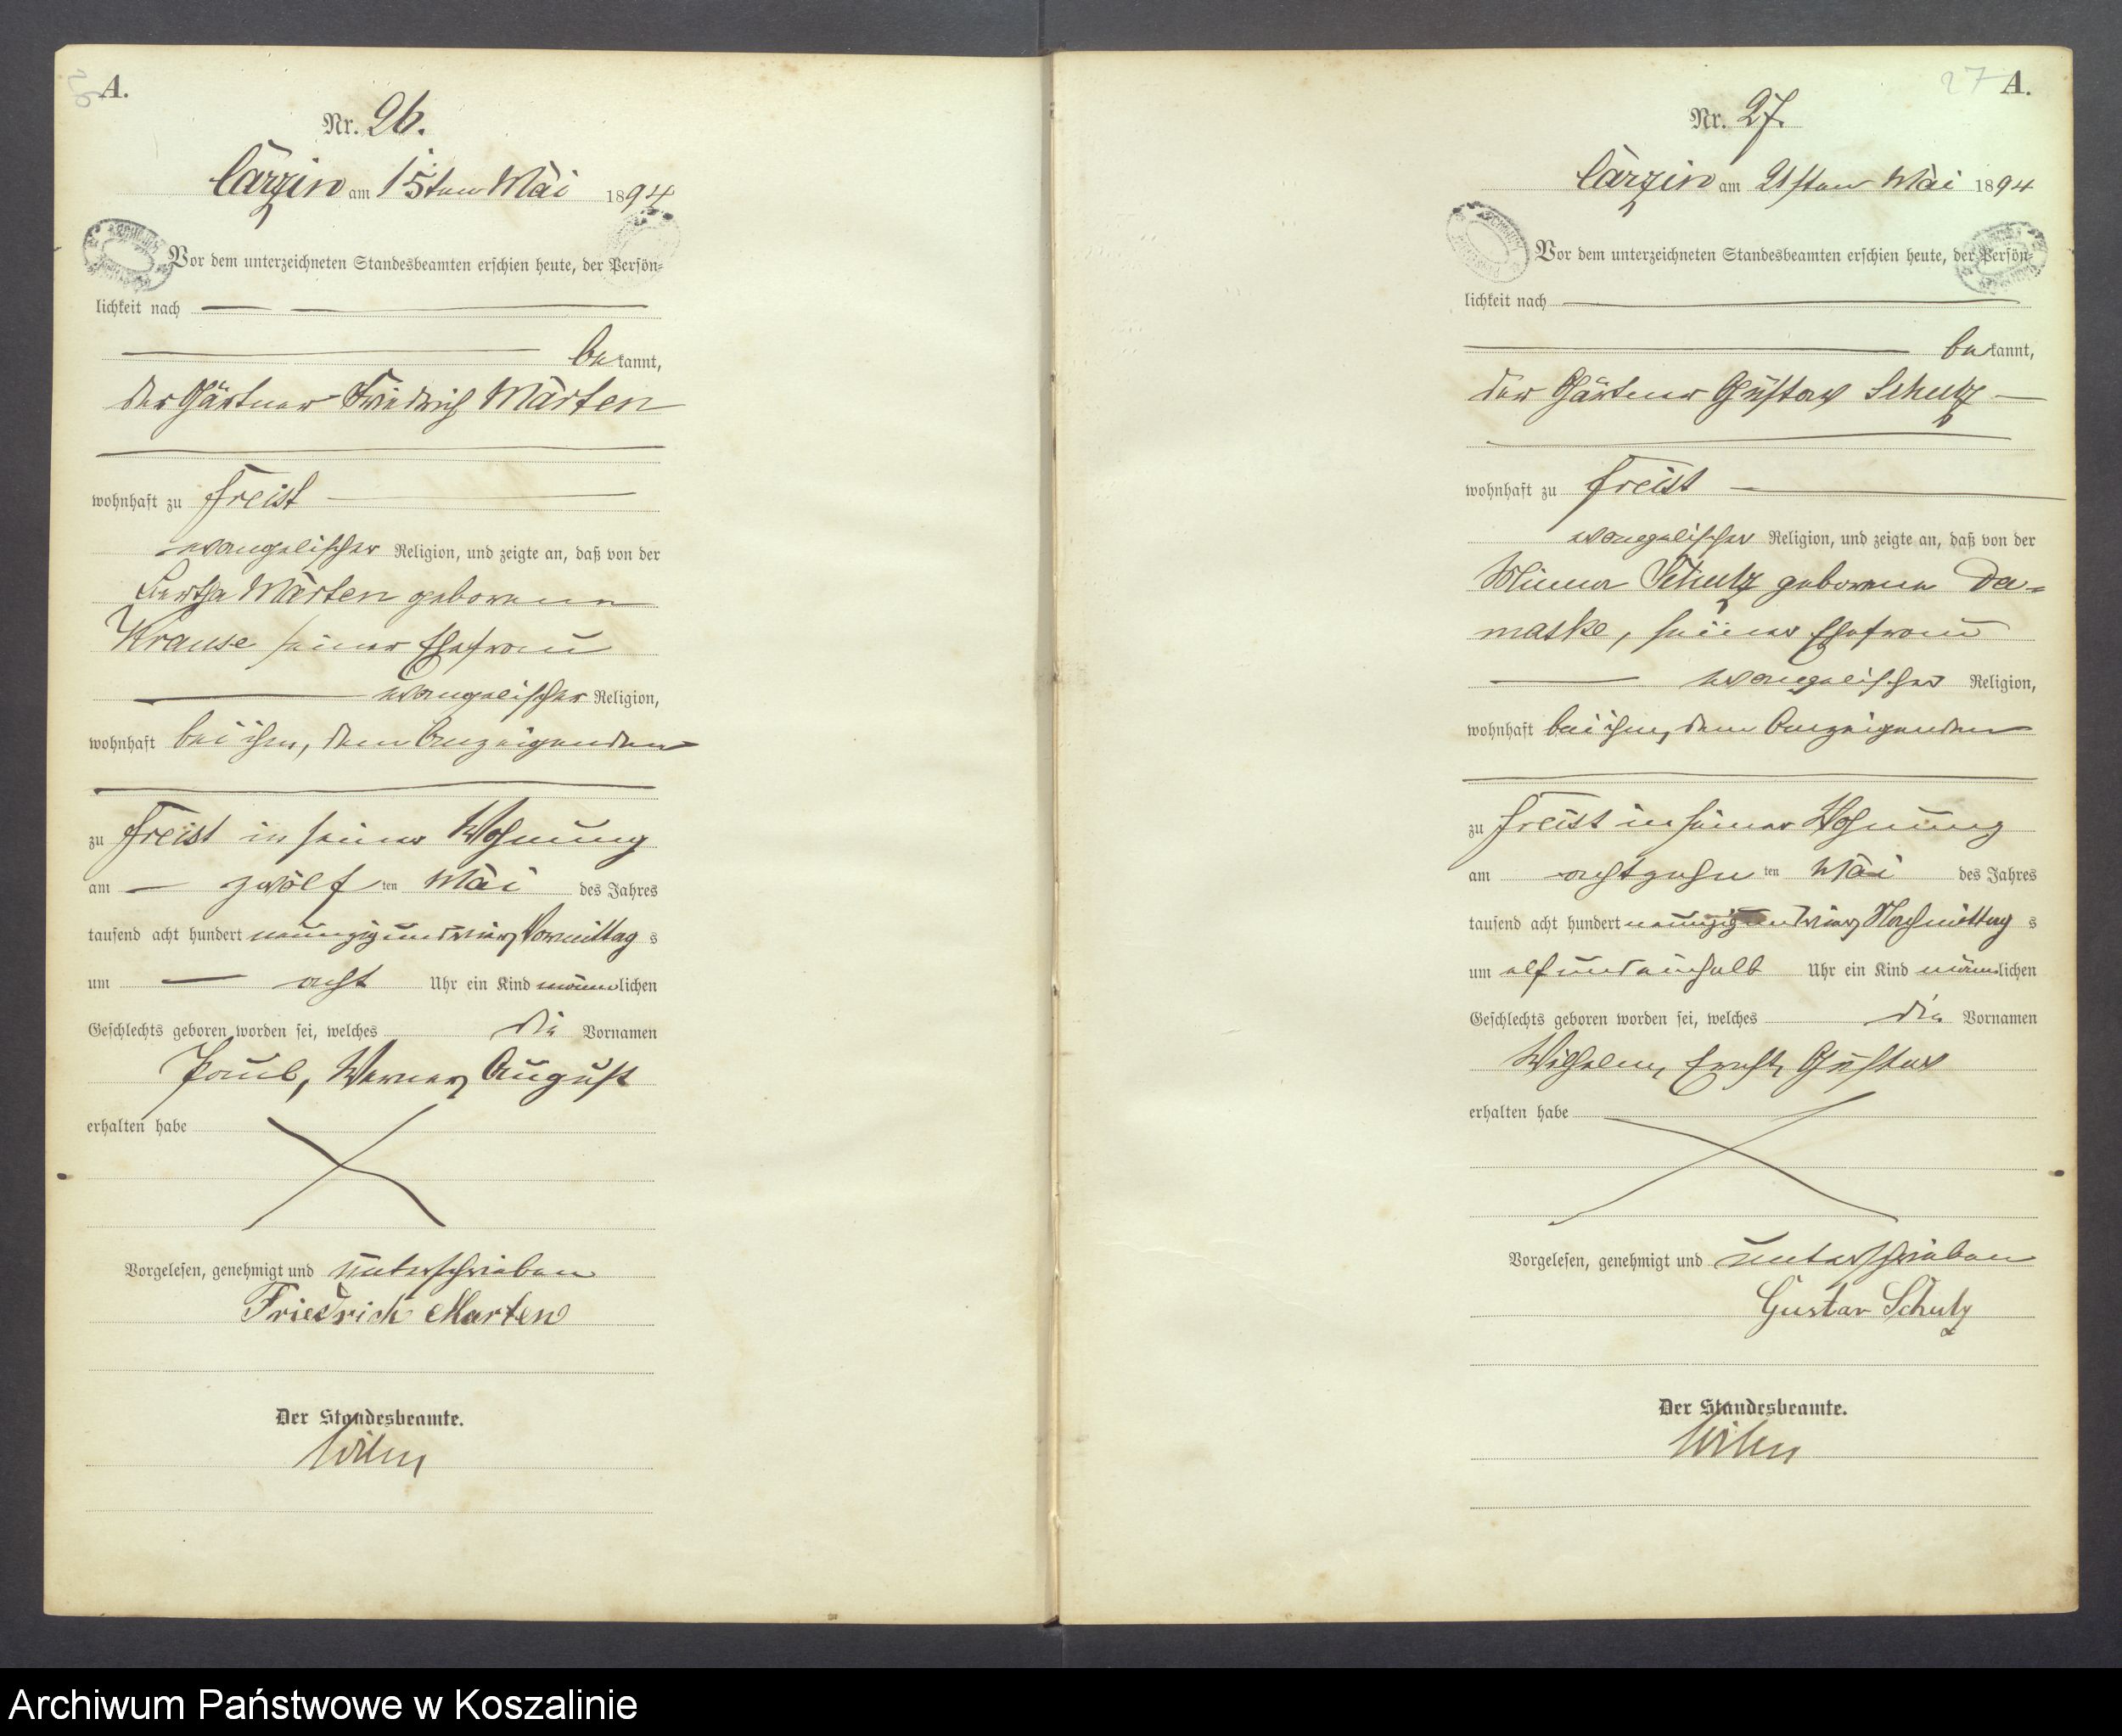 A.
Nr. 26.
Carzin am 15ten Mai 1894
Vor dem unterzeichneten Standesbeamten erschien heute, der Persön-
lichkeit nach
bekannt,
der Gärtner Friedrich Marten
wohnhaft zu Freist
evangelischer Religion, und zeigte an, daß von der
Bertha Marten geborenen
Krause seiner Ehefrau
evangelischer Religion,
wohnhaft bei ihm, dem Anzeigenden
zu Freist in seiner Wohnung
am zwölften Mai des Jahres
tausend acht hundert neunzig und vier Vormittags
um acht Uhr ein Kind männlichen
Geschlechts geboren worden sei, welches die Vornamen
Paul, Werner, August
erhalten habe
Vorgelesen, genehmigt und unterschrieben
Friedrich Marten
Der Standesbeamte.
27 A.
Nr. 27.
Carzin am 21sten Mai 1894
Vor dem unterzeichneten Standesbeamten erschien heute, der Persön-
lichkeit nach
bekannt,
der Gärtner Gustav Schulz
wohnhaft zu Freist
evangelischer Religion, und zeigte an, daß von der
Minna Schulz geborene Da-
maske, seiner Ehefrau
evangelischer Religion,
wohnhaft bei ihm, dem Anzeigenden
zu Freist in seiner Wohnung
am achtzehnten Mai des Jahres
tausend acht hundert neunzig und vier Nachmittags
um elf und einhalb Uhr ein Kind männlichen
Geschlechts geboren worden sei, welches die Vornamen
Wilhelm, Ernst, Gustav
erhalten habe
Vorgelesen, genehmigt und unterschrieben
Gustav Schulz
Der Standesbeamte.
Archiwum Państwowe w Koszalinie